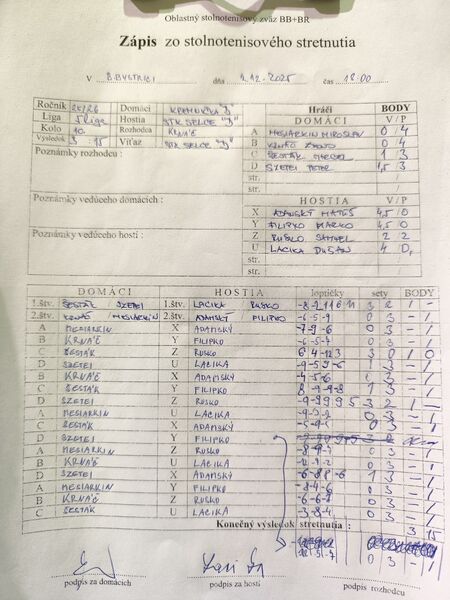 Oblastný stolnotenisový zväz BB+BR
Zápis zo stolnotenisového stretnutia
V B. BYSTRICI dňa 4.12.2025 čas 18:00
Ročník 25/26 Domáci KREMNIČKA "D" Hráči BODY
Liga 5 liga Hostia STK SELCE "D" DOMÁCI V / P
Kolo 10. Rozhodca KRNÁČ A MESIARKIN MIROSLAV 0 / 4
Výsledok 3 : 15 Víťaz STK SELCE "D" B KRNÁČ 0 / 4
Poznámky rozhodcu : C ŠESTÁK 1 / 3
D SZETEI PETER 1,5 / 3
str.
str. /
Poznámky vedúceho domácich : HOSTIA V / P
X ADAMSKÝ MATÚŠ 4,5 / 0
Y FILIPKO MARKO 4,5 / 0
Poznámky vedúceho hostí : Z RUSKO SAMUEL 2 / 2
U LACIKA DUŠAN 4
str.
str.
DOMÁCI HOSTIA loptičky sety BODY
1.štv. ŠESTÁK / SZETEI 1.štv. LACIKA / RUSKO 3 2 1 -
2.štv. KRNÁČ / MESIARKIN 2.štv. ADAMSKÝ / FILIPKO -6-5-9 0 3 - 1
A MESIARKIN X ADAMSKÝ -7-9-6 0 3 - 1
B KRNÁČ Y FILIPKO -6-5-7 0 3 - 1
C ŠESTÁK Z RUSKO 3 0 1 0
D SZETEI U LACIKA 1 3 - 1
B KRNÁČ X ADAMSKÝ -4-5-6 0 3 - 1
C ŠESTÁK Y FILIPKO 8-9-9-8 1 3 - 1
D SZETEI Z RUSKO 3 2 1 -
A MESIARKIN U LACIKA -9-3-2 0 3 - 1
C ŠESTÁK X ADAMSKÝ -5-9-5 0 3 - 1
D SZETEI Y FILIPKO
A MESIARKIN Z RUSKO -8-9-7 0 3 - 1
B KRNÁČ U LACIKA 0 3 - 1
D SZETEI X ADAMSKÝ -6-8 8-6 1 3 - 1
A MESIARKIN Y FILIPKO -8-4-6 0 3 - 1
B KRNÁČ Z RUSKO -6-6-9 0 3 - 1
C ŠESTÁK U LACIKA -3-8-4 0 3 - 1
Konečný výsledok stretnutia : 3 15
0 3 - 1
podpis za domácich podpis za hostí podpis rozhodcu